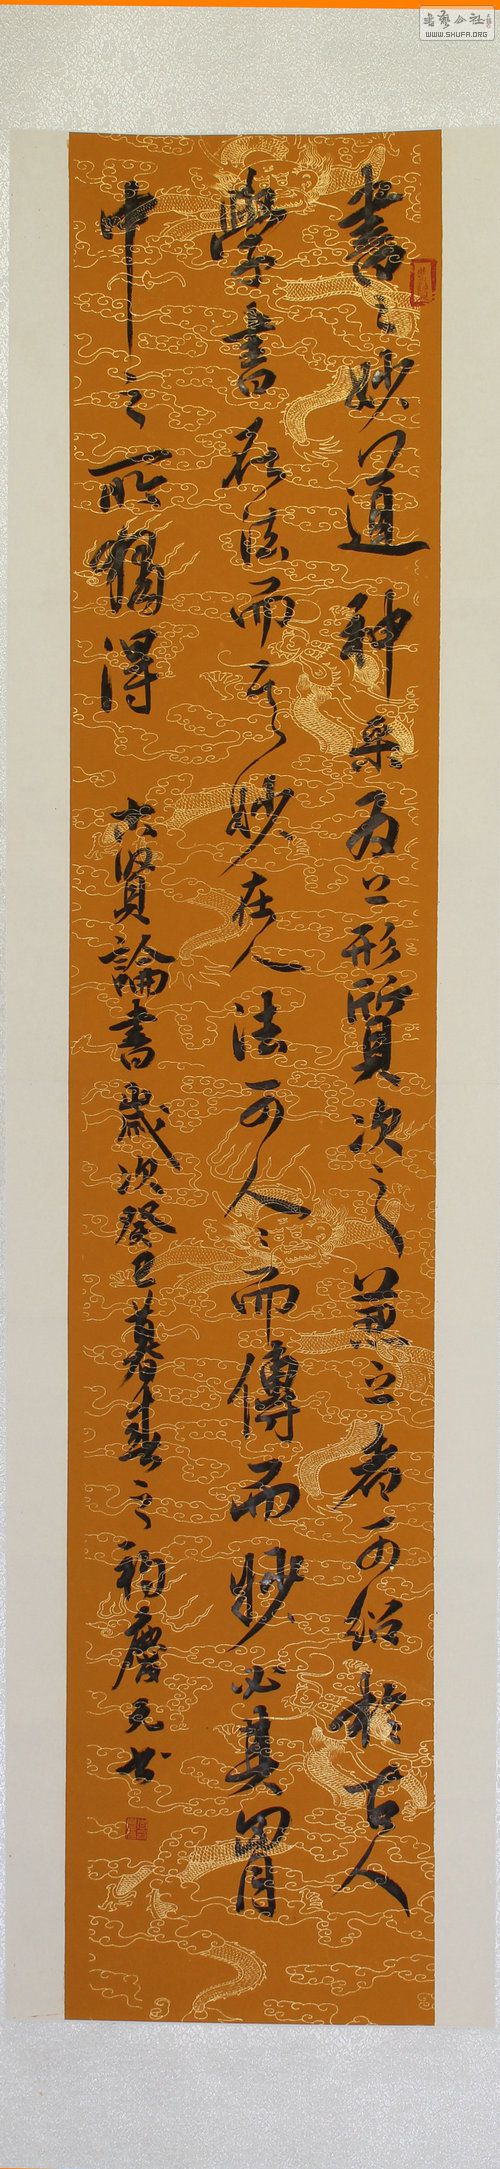 書之妙道神采為上形質次之兼之者可紹於古人
學書在法而其妙在人法可人人而傳而妙必其胷
中之所獨得
古賢論書歲次癸巳暮春之初慶元書
WWW.SHUFA.ORG